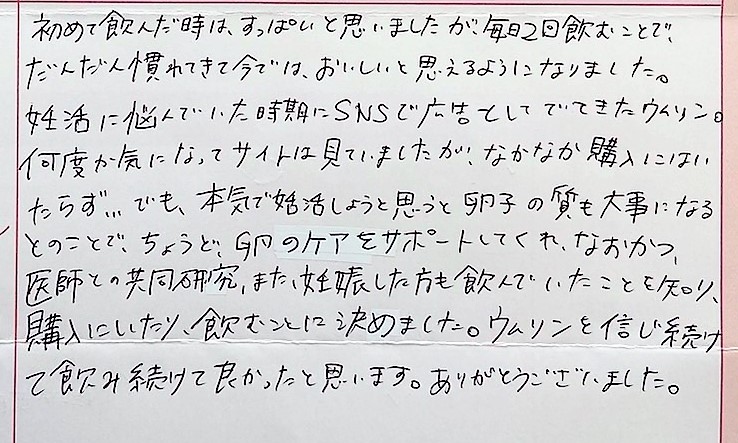 初めて飲んだ時は、すっぱいと思いましたが、毎日2回飲むことで、
だんだん慣れてきて今では、おいしいと思えるようになりました。
妊活に悩んでいた時期にSNSで広告としてでてきたウムリン。
何度か気になってサイトは見ていましたが、なかなか購入にはい
たらず… でも、本気で妊活しようと思うと卵子の質も大事になる
とのことで、ちょうど、卵のケアをサポートしてくれ、なおかつ、
医師との共同研究、また、妊娠した方も飲んでいたことを知り、
購入にいたり、飲むことに決めました。ウムリンを信じ続け
て飲み続けて良かったと思います。ありがとうございました。